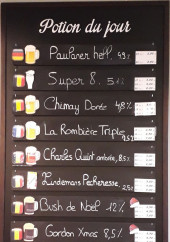 Potion du jour
Paulaner hell. 4,9%
Super 8.
Chimay Dorée 4,8%
La Rombière Triple 7,5%
Charles Quint ambrée, 8,5%
Lindemans Pecheresse 2,5%
Bush de Noel 12%
Gordon Xmas 8,5%